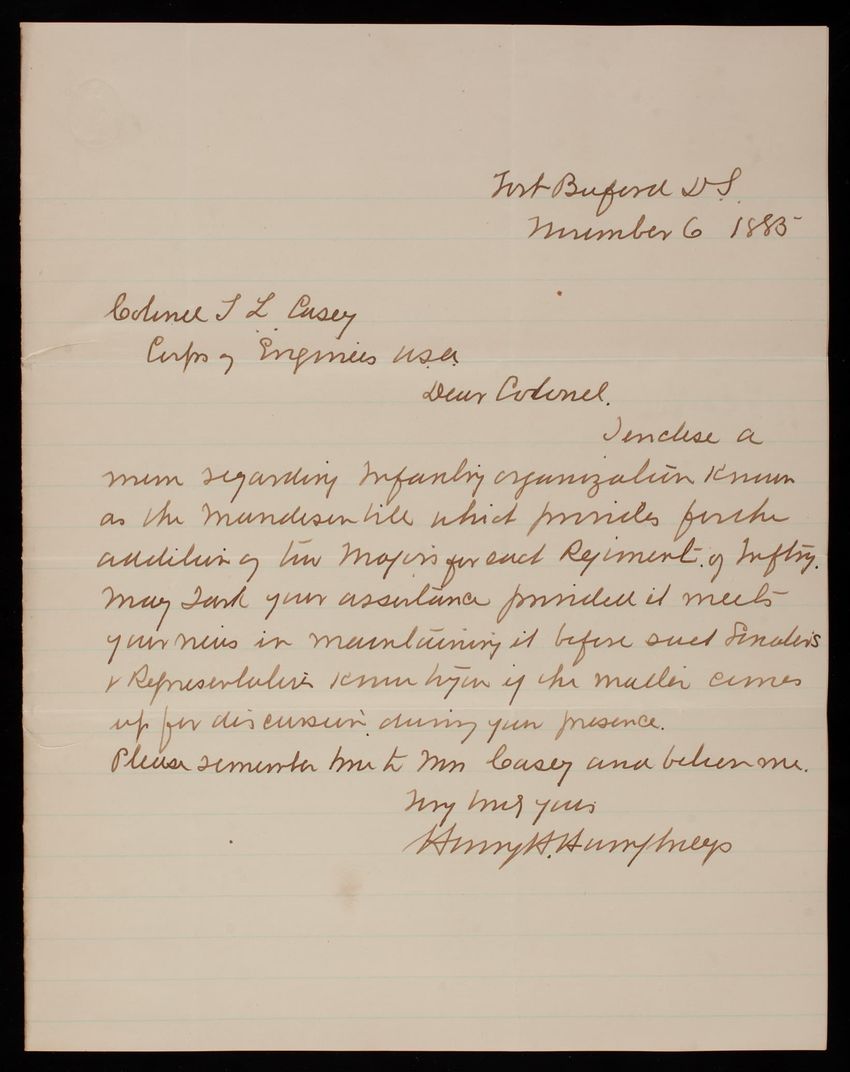 Fort Buford D.T.
November 6 1885
Colonel T L Casey
Corps of Engineers U.S.A.
Dear Colonel.
I enclose a
mem regarding Infantry organization known
as the Manderson bill which provides for the
addition of two Majors for each Regiment of Inftry.
May I ask your assistance provided it meets
your views in maintaining it before such Senators
& Representatives known to you if the matter comes
up for discussion during your presence.
Please remember me to Mrs Casey and believe me.
Very truly yours
Henry H. Humphreys